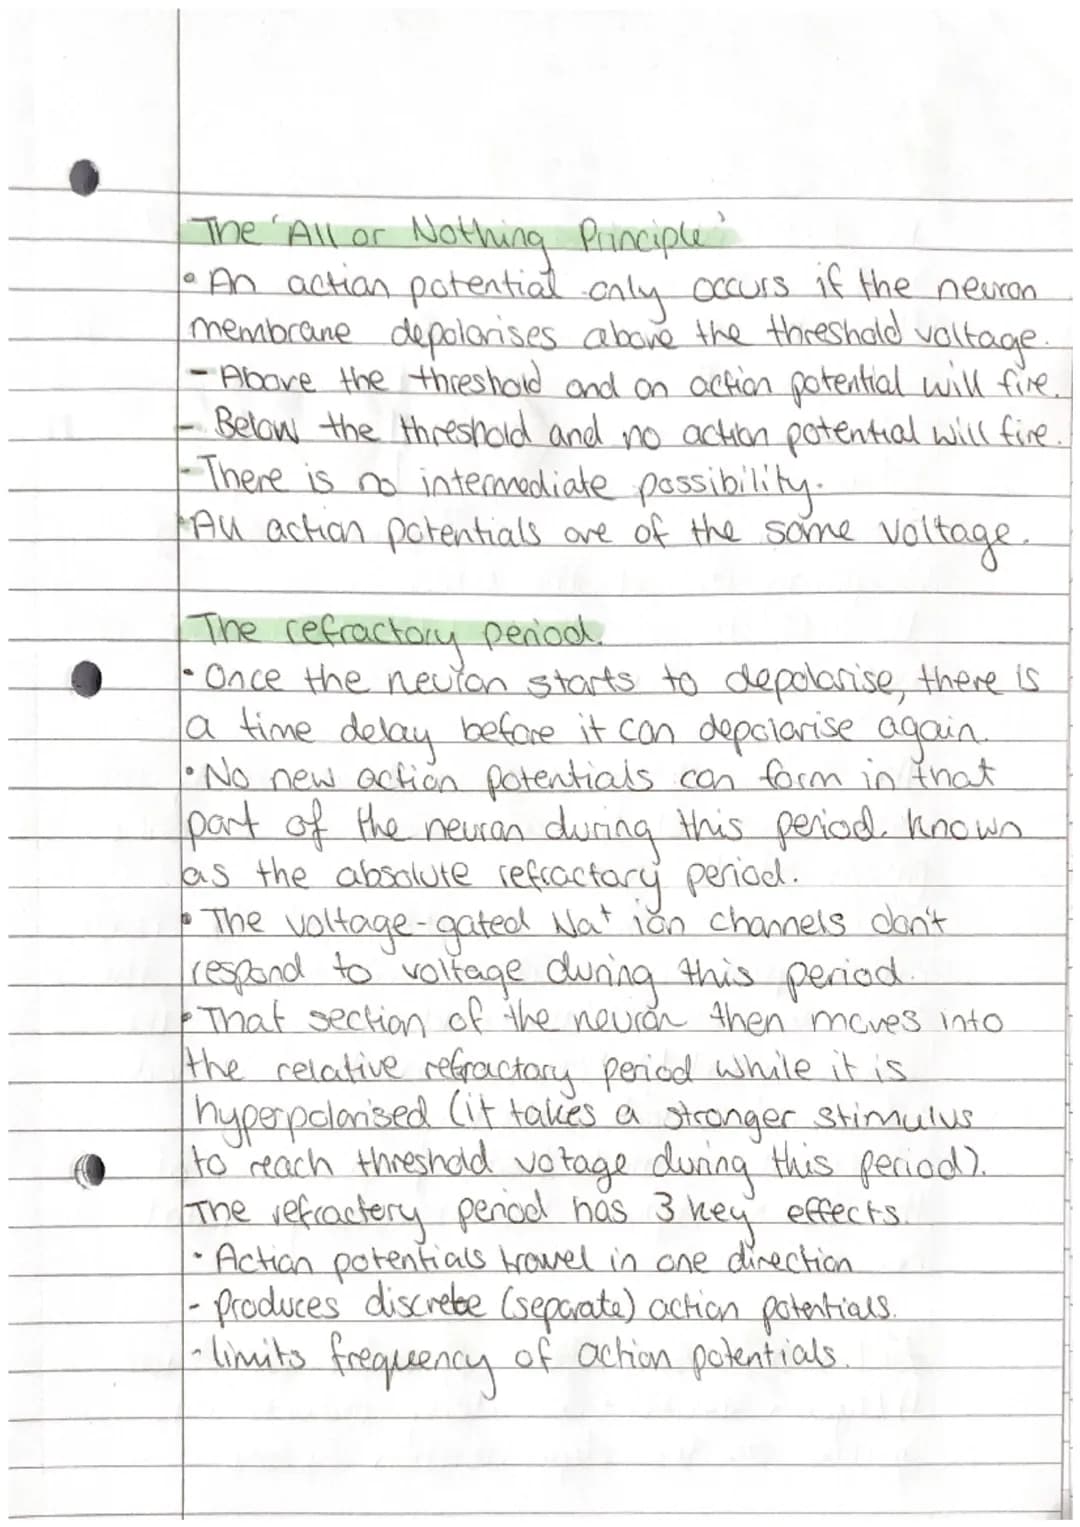 The 'All or Nothing Principle'
• An action potential only occurs if the neuron
membrane depolarises above the threshold voltage.
- Above the threshold and an action potential will fire.
- Below the threshold and no action potential will fire.
- There is no intermediate possibility.
• All action potentials are of the same voltage.
The refractory period.
• Once the neuron starts to depolarise, there is
a time delay before it can depolarise again.
• No new action potentials can form in that
part of the neuron during this period. known
as the absolute refractory period.
• The voltage-gated Na⁺ ion channels don't
respond to voltage during this period.
• That section of the neuron then moves into
the relative refractory period while it is
hyperpolarised (it takes a stronger stimulus
to reach threshold votage during this period).
The refractery period has 3 key effects.
• Action potentials travel in one direction
- produces discrete (separate) action potentials.
- limits frequency of action potentials.